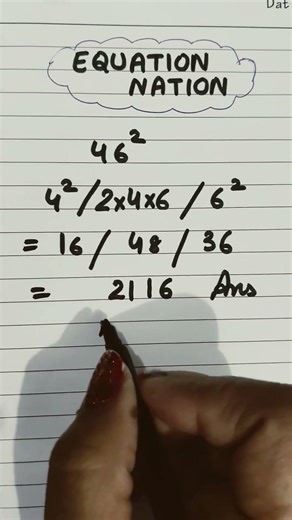 Dat
EQUATION
NATION
46²
4²/2×4×6/6²
= 16/48/36
= 2116 Ans